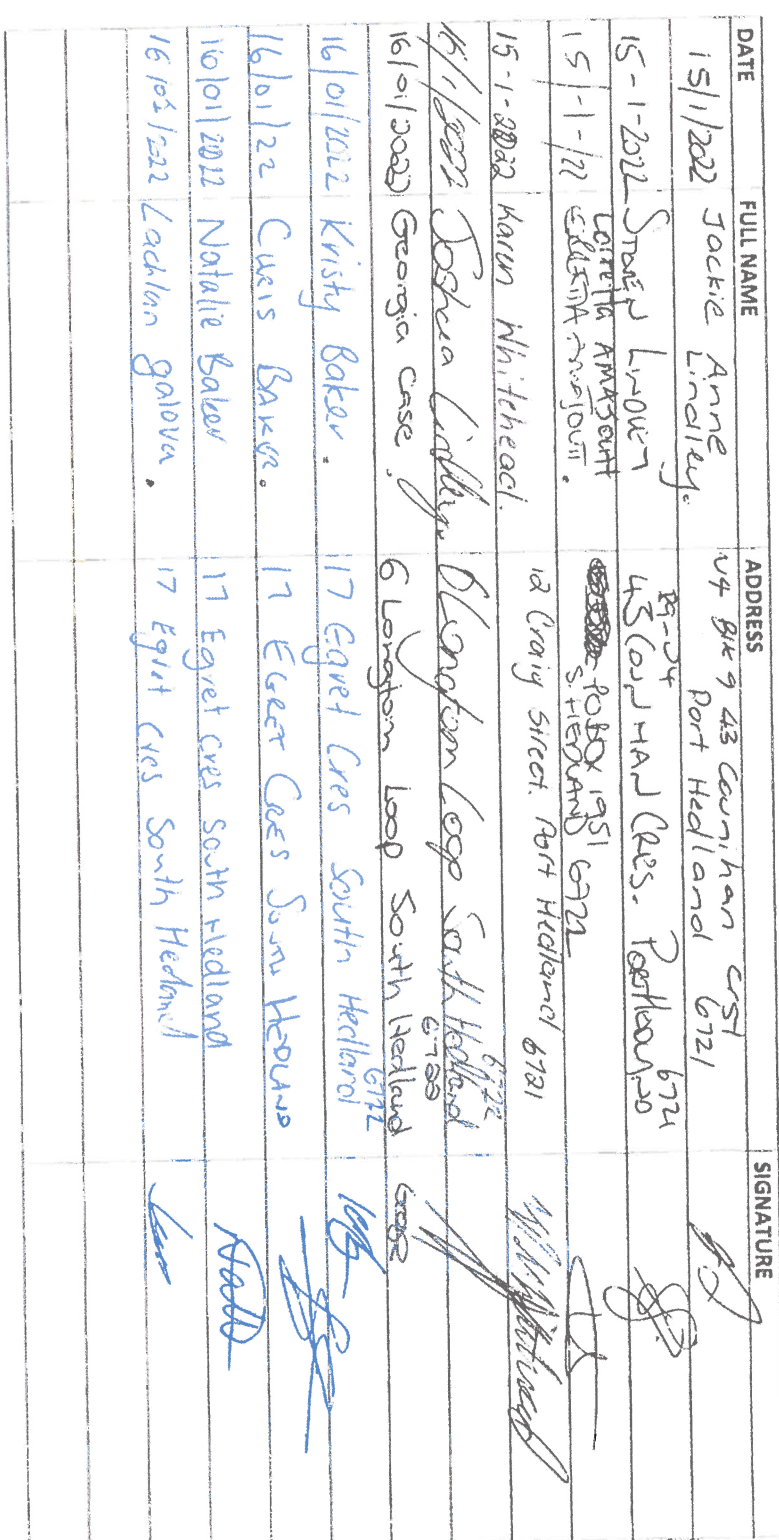 DATE FULL NAME ADDRESS SIGNATURE
15/1/2022 Jackie Anne Lindley. U4 Blk 9 43 Counihan Crst Port Hedland 6721
15-1-2022 Lindley B9-U4 43 Counihan Cres. Port Hedland 6721
15/-1-/22 Loretta PO BOX 1951 S. HEDLAND 6722
15-1-2022 Karen Whitehead. 12 Craig Street, Port Hedland 6721
15/1/2022 Joshua Lindley. 6 Longtom Loop South Hedland 6722
16/01/2022 Georgia Case. 6 Longtom Loop South Hedland 6722
16/01/2022 Kristy Baker. 17 Egret Cres South Hedland 6722
16/01/22 BAKER. 17 EGRET CRES SOUTH HEDLAND
16/01/2022 Natalie Baker 17 Egret cres South Hedland
16/01/222 Lachlan galova. 17 Egret Cres South Hedland